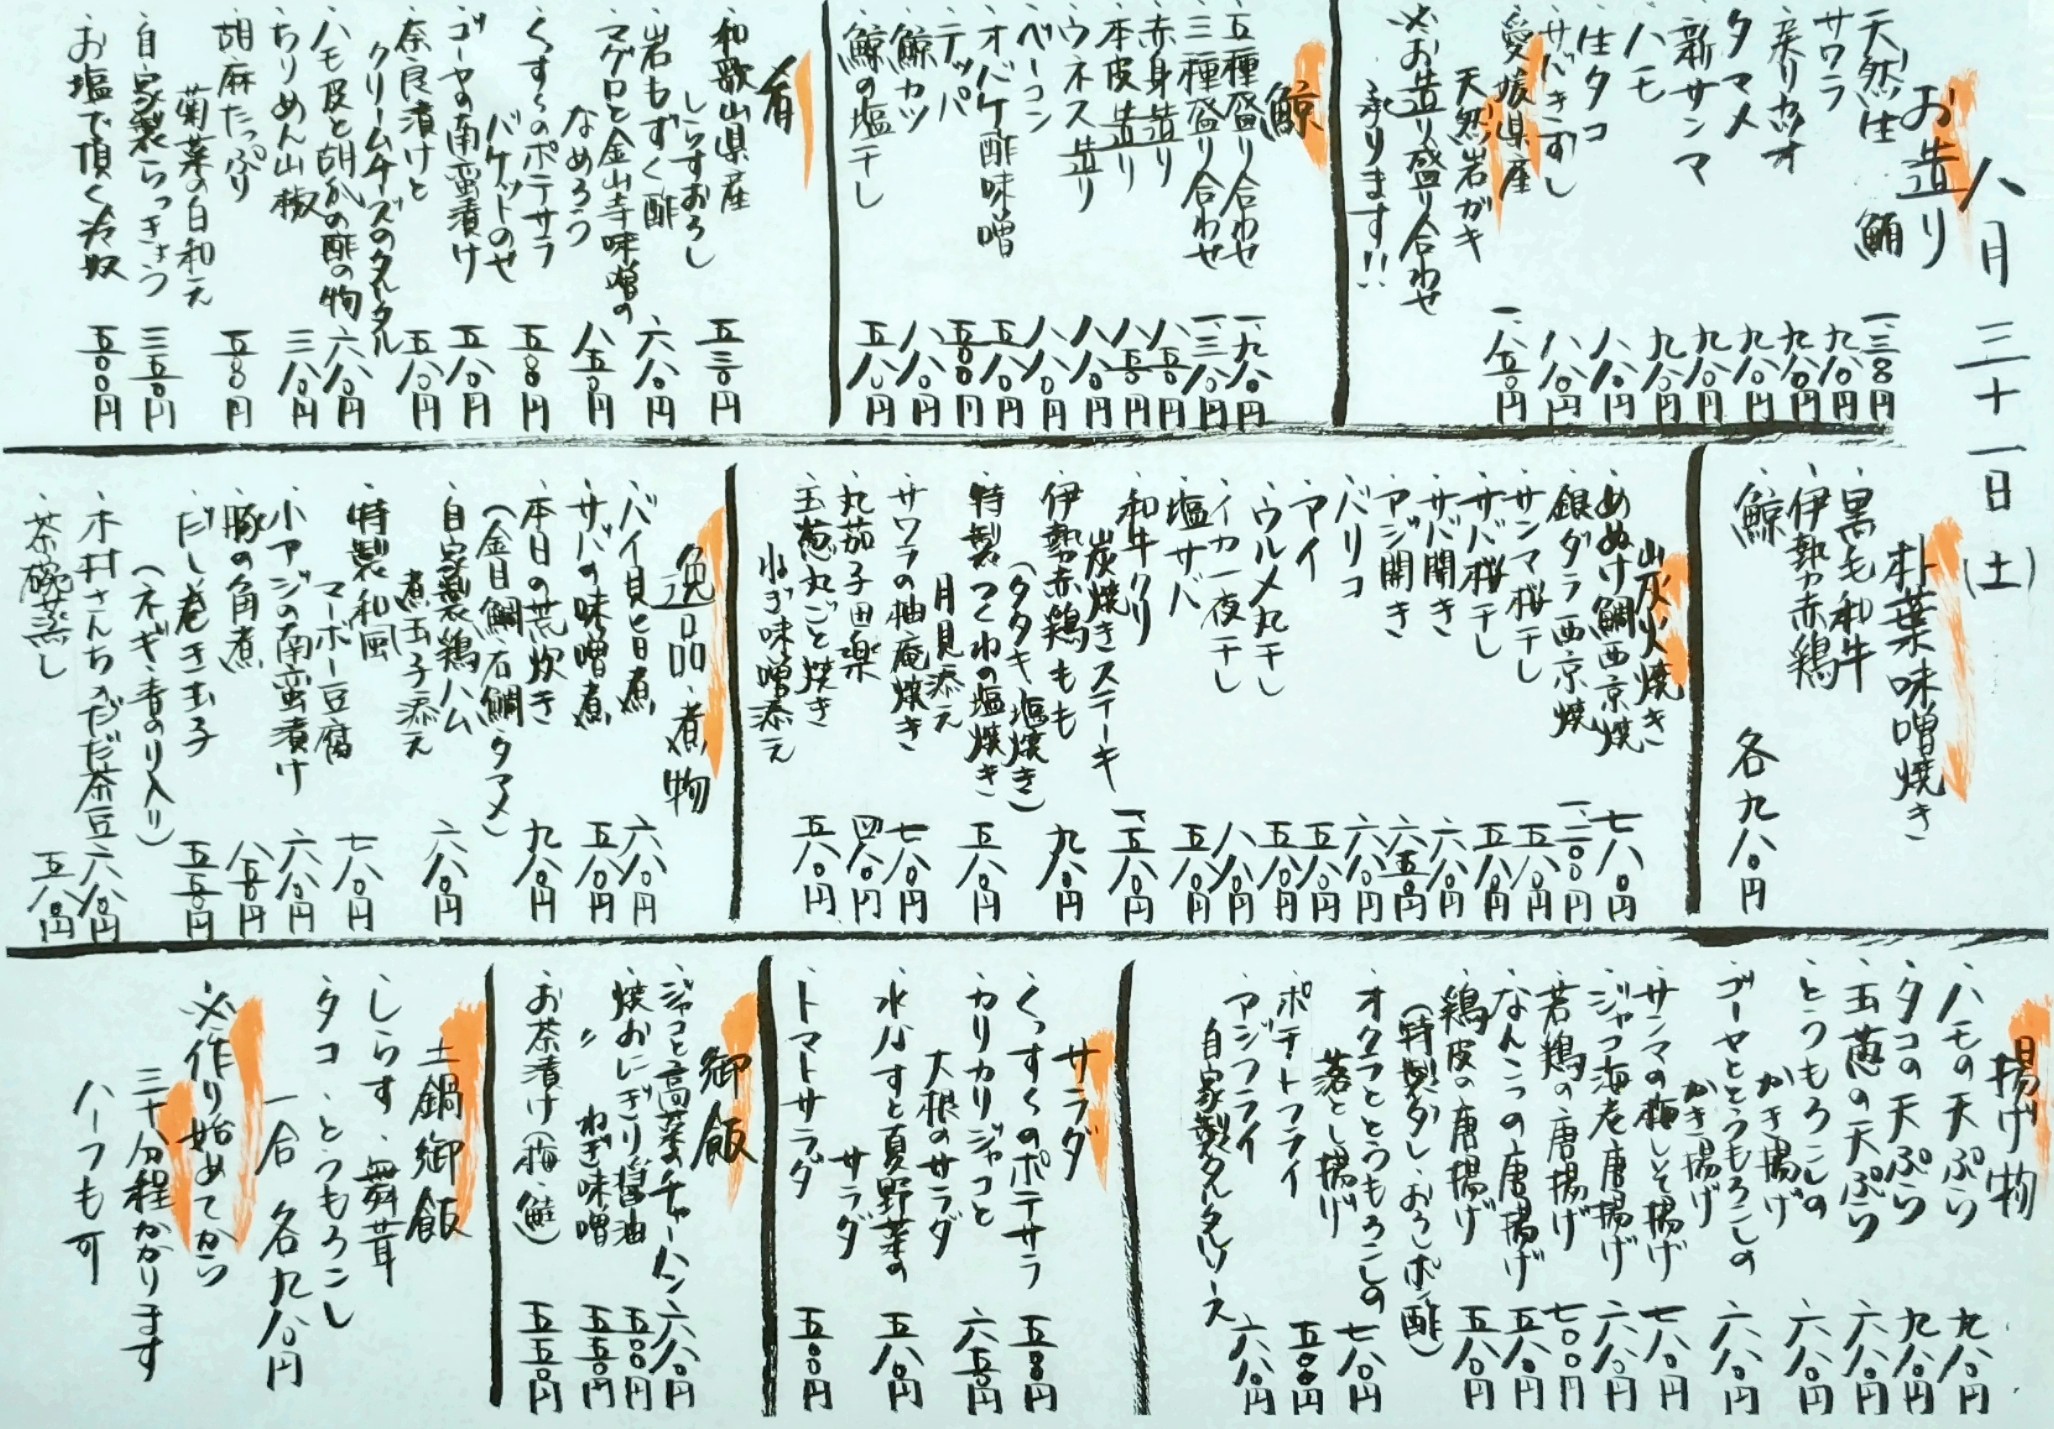 八月三十一日(土)
お造り
・天然生鮪 一、三〇〇円
・サワラ 九八〇円
・戻りカツオ 九八〇円
・タマメ 九八〇円
・新サンマ 九八〇円
・ハモ 九八〇円
・生タコ 八八〇円
・サバきずし 八八〇円
・愛媛県産
天然岩ガキ 一、八五〇円
※お造り盛り合わせ
承ります!!
鯨
・五種盛り合わせ 一、九八〇円
・三種盛り合わせ 一、三八〇円
・赤身造り 八五〇円
・本皮造り 八五〇円
・ウネス造り 八八〇円
・ベーコン 八八〇円
・オバケ酢味噌 五八〇円
・テッパ 五〇〇円
・鯨カツ 八八〇円
・鯨の塩干し 五八〇円
肴
・和歌山県産
しらすおろし 五三〇円
・岩もずく酢 六八〇円
・マグロと金山寺味噌の
なめろう 八五〇円
・くすくのポテサラ
バケットのせ 五五〇円
・ゴーヤの南蛮漬け 五八〇円
・奈良漬けと
クリームチーズのタルタル 五八〇円
・ハモ皮と胡瓜の酢の物 六八〇円
・ちりめん山椒 三八〇円
・胡麻たっぷり
菊菜の白和え 五五〇円
・自家製らっきょう 三五〇円
・お塩で頂く冷奴 五〇〇円
朴葉味噌焼き
・黒毛和牛
・伊勢赤鶏
・鯨
各九八〇円
炭火焼き
・めぬけ鯛西京焼 七八〇円
・銀ダラ西京焼 一、二〇〇円
・サンマ桜干し 五八〇円
・サバ桜干し 五八〇円
・サバ開き 六八〇円
・アジ開き 六五〇円
・バリコ 六八〇円
・アイ 五八〇円
・ウルメ丸干し 五八〇円
・イカ一夜干し 八八〇円
・塩サバ 五八〇円
・和牛クリ
炭焼きステーキ 一、五八〇円
・伊勢赤鶏もも
(タタキ、塩焼き) 九八〇円
・特製つくねの塩焼き
月見添え 五八〇円
・サワラの柚庵焼き 七八〇円
・丸茄子田楽 四八〇円
・玉葱丸ごと焼き
ねぎ味噌添え 五八〇円
逸品・煮物
・バイ貝旨煮 六八〇円
・サバの味噌煮 五八〇円
・本日の荒炊き
(金目鯛、石鯛、タマメ) 九八〇円
・自家製鶏ハム
煮玉子添え 六八〇円
・特製和風
マーボー豆腐 七八〇円
・小アジの南蛮漬け 六八〇円
・豚の角煮 八五〇円
・だし巻き玉子
(ネギ・青のり入り) 五五〇円
・木村さんちのだだ茶豆 六八〇円
・茶碗蒸し 五八〇円
揚げ物
・ハモの天ぷら 九八〇円
・タコの天ぷら 九八〇円
・玉葱の天ぷら 六八〇円
・とうもろこしの
かき揚げ 六八〇円
・ゴーヤととうもろこしの
かき揚げ 六八〇円
・サンマの梅しそ揚げ 七八〇円
・ジャコ海老唐揚げ 六八〇円
・若鶏の唐揚げ 七〇〇円
・なんこつの唐揚げ 五八〇円
・鶏皮の唐揚げ 五八〇円
(特製ダレ・おろしポン酢)
・オクラととうもろこしの
落とし揚げ 七八〇円
・ポテトフライ 五〇〇円
・アジフライ
自家製タルタルソース 六八〇円
サラダ
・くすくのポテサラ 五五〇円
・カリカリジャコと
大根のサラダ 六五〇円
・水なすと夏野菜の
サラダ 五八〇円
・トマトサラダ 五〇〇円
御飯
・ジャコと高菜のチャーハン 六八〇円
・焼おにぎり醤油 五〇〇円
〃 ねぎ味噌 五五〇円
・お茶漬け(梅・鮭) 五五〇円
土鍋御飯
・しらす、舞茸
・タコ、とうもろこし
一合 各九八〇円
※作り始めてから
三十分程かかります
ハーフも可